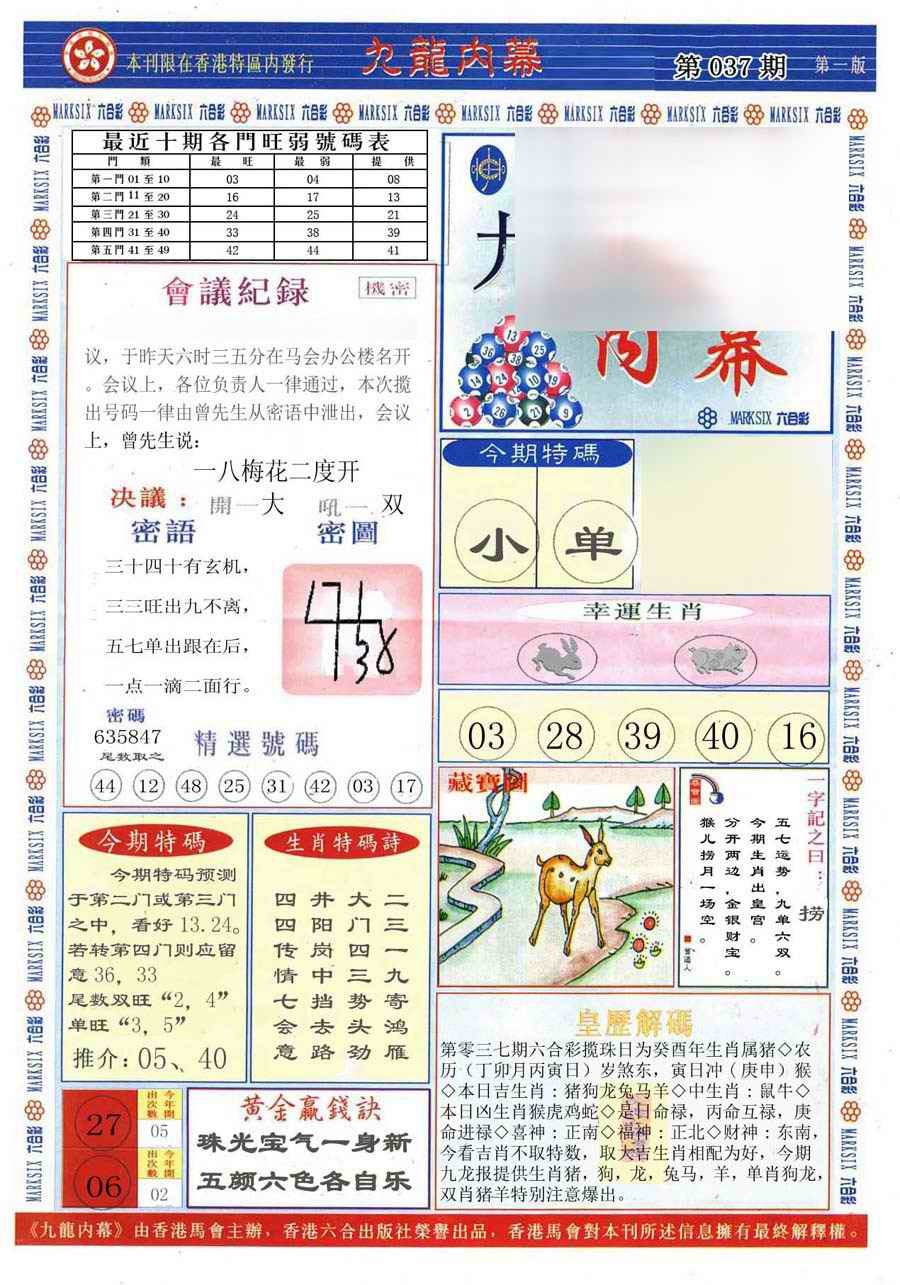 本刊限在香港特區内發行
九龍内幕
第 037 期
第一版
MARKSIX 六合彩
最近十期各門旺弱號碼表
門 類 最 旺 最 弱 提 供
第一門 01 至 10 03 04 08
第二門 11 至 20 16 17 13
第三門 21 至 30 24 25 21
第四門 31 至 40 33 38 39
第五門 41 至 49 42 44 41
會議紀録
機密
议，于昨天六时三五分在马会办公楼名开
。会议上，各位负责人一律通过，本次揽
出号码一律由曾先生从密语中泄出，会议
上，曾先生说：
一八梅花二度开
决議：開一大 吼一双
密語
密圖
三十四十有玄机，
三三旺出九不离，
五七单出跟在后，
一点一滴二面行。
密碼
635847
尾数取之
精選號碼
44 12 48 25 31 42 03 17
内幕
13
36 38 25
14 24 10 19
2 26 27 9
MARKSIX 六合彩
今期特碼
小 单
幸運生肖
03 28 39 40 16
藏寶圖
一字記之曰：
捞
五七运势，九单六双。
今期生肖出皇宫。
分开两边，金银财宝。
猴儿捞月一场空。
曾道人
今期特碼
今期特码预测
于第二门或第三门
之中，看好 13.24。
若转第四门则应留
意 36，33
尾数双旺“2，4”
单旺“3，5”
推介：05、40
生肖特碼詩
二三一九寄鸿雁
大门四三势头劲
井阳岗中挡去路
四四传情七会意
27
今年開出次數
05
06
今年開出次數
02
黄金贏錢訣
珠光宝气一身新
五颜六色各自乐
皇歷解碼
第零三七期六合彩揽珠日为癸酉年生肖属猪◇农
历（丁卯月丙寅日）岁煞东，寅日冲（庚申）猴
◇本日吉生肖：猪狗龙兔马羊◇中生肖：鼠牛◇
本日凶生肖猴虎鸡蛇◇是日命禄，丙命互禄，庚
命进禄◇喜神：正南◇福神：正北◇财神：东南，
今看吉肖不取特数，取大吉生肖相配为好，今期
九龙报提供生肖猪，狗，龙，兔马，羊，单肖狗龙，
双肖猪羊特别注意爆出。
《九龍内幕》由香港馬會主辦，香港六合出版社榮譽出品，香港馬會對本刊所述信息擁有最終解釋權。